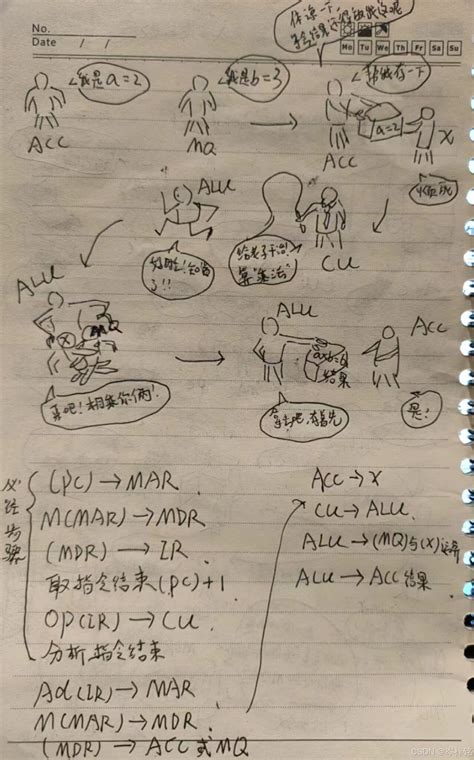 No.
Date / /
Mo Tu We Th Fr Sa Su
体谅一下,
我是a=2
我是b=3
帮我存一下
ACC
MQ
ACC
a=2
X
烦死
ALU
CU
给老子干活!
算乘法!
好嘞!知道
了!!
ALU
X
MQ
ALU
a×b=6
结果
ACC
来吧!相乘你俩!
拿去吧,
是!
必经步骤
(PC)→MAR
M(MAR)→MDR
(MDR)→IR
取指令结束(PC)+1
OP(IR)→CU
分析指令结束
Ad(IR)→MAR
M(MAR)→MDR
(MDR)→ACC或MQ
ACC→X
CU→ALU
ALU→(MQ)与(X)运算
ALU→ACC结果